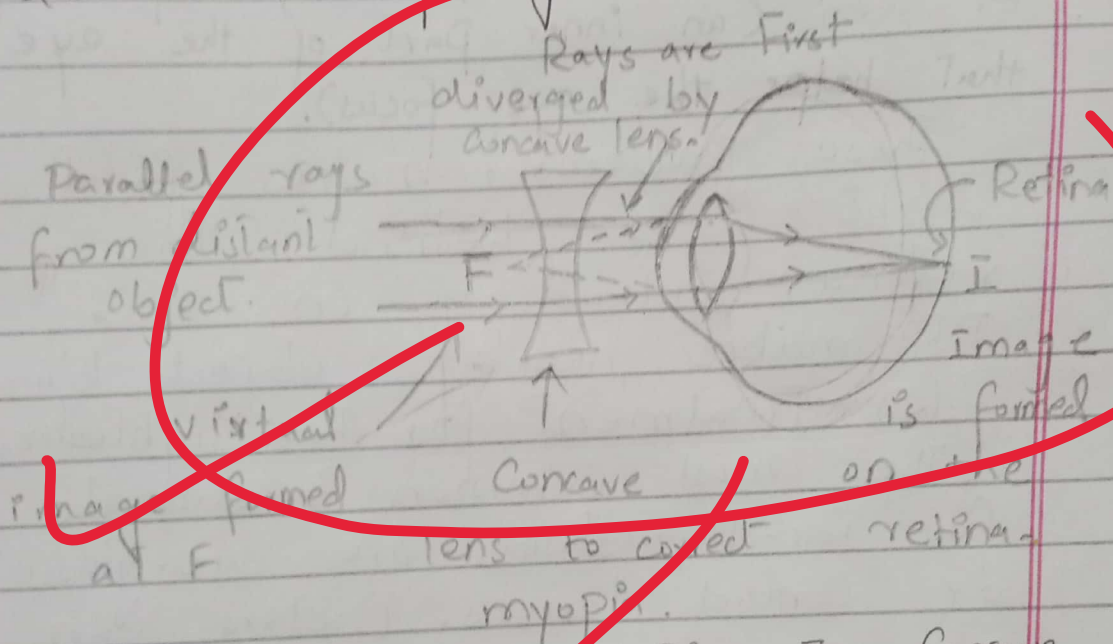 Rays are First
diverged by
Concave lens.
Parallel rays
from distant
object.
F
Retina
I
Image
is formed
on the
retina.
virtual
image formed
at F
Concave
lens to corect
myopia.